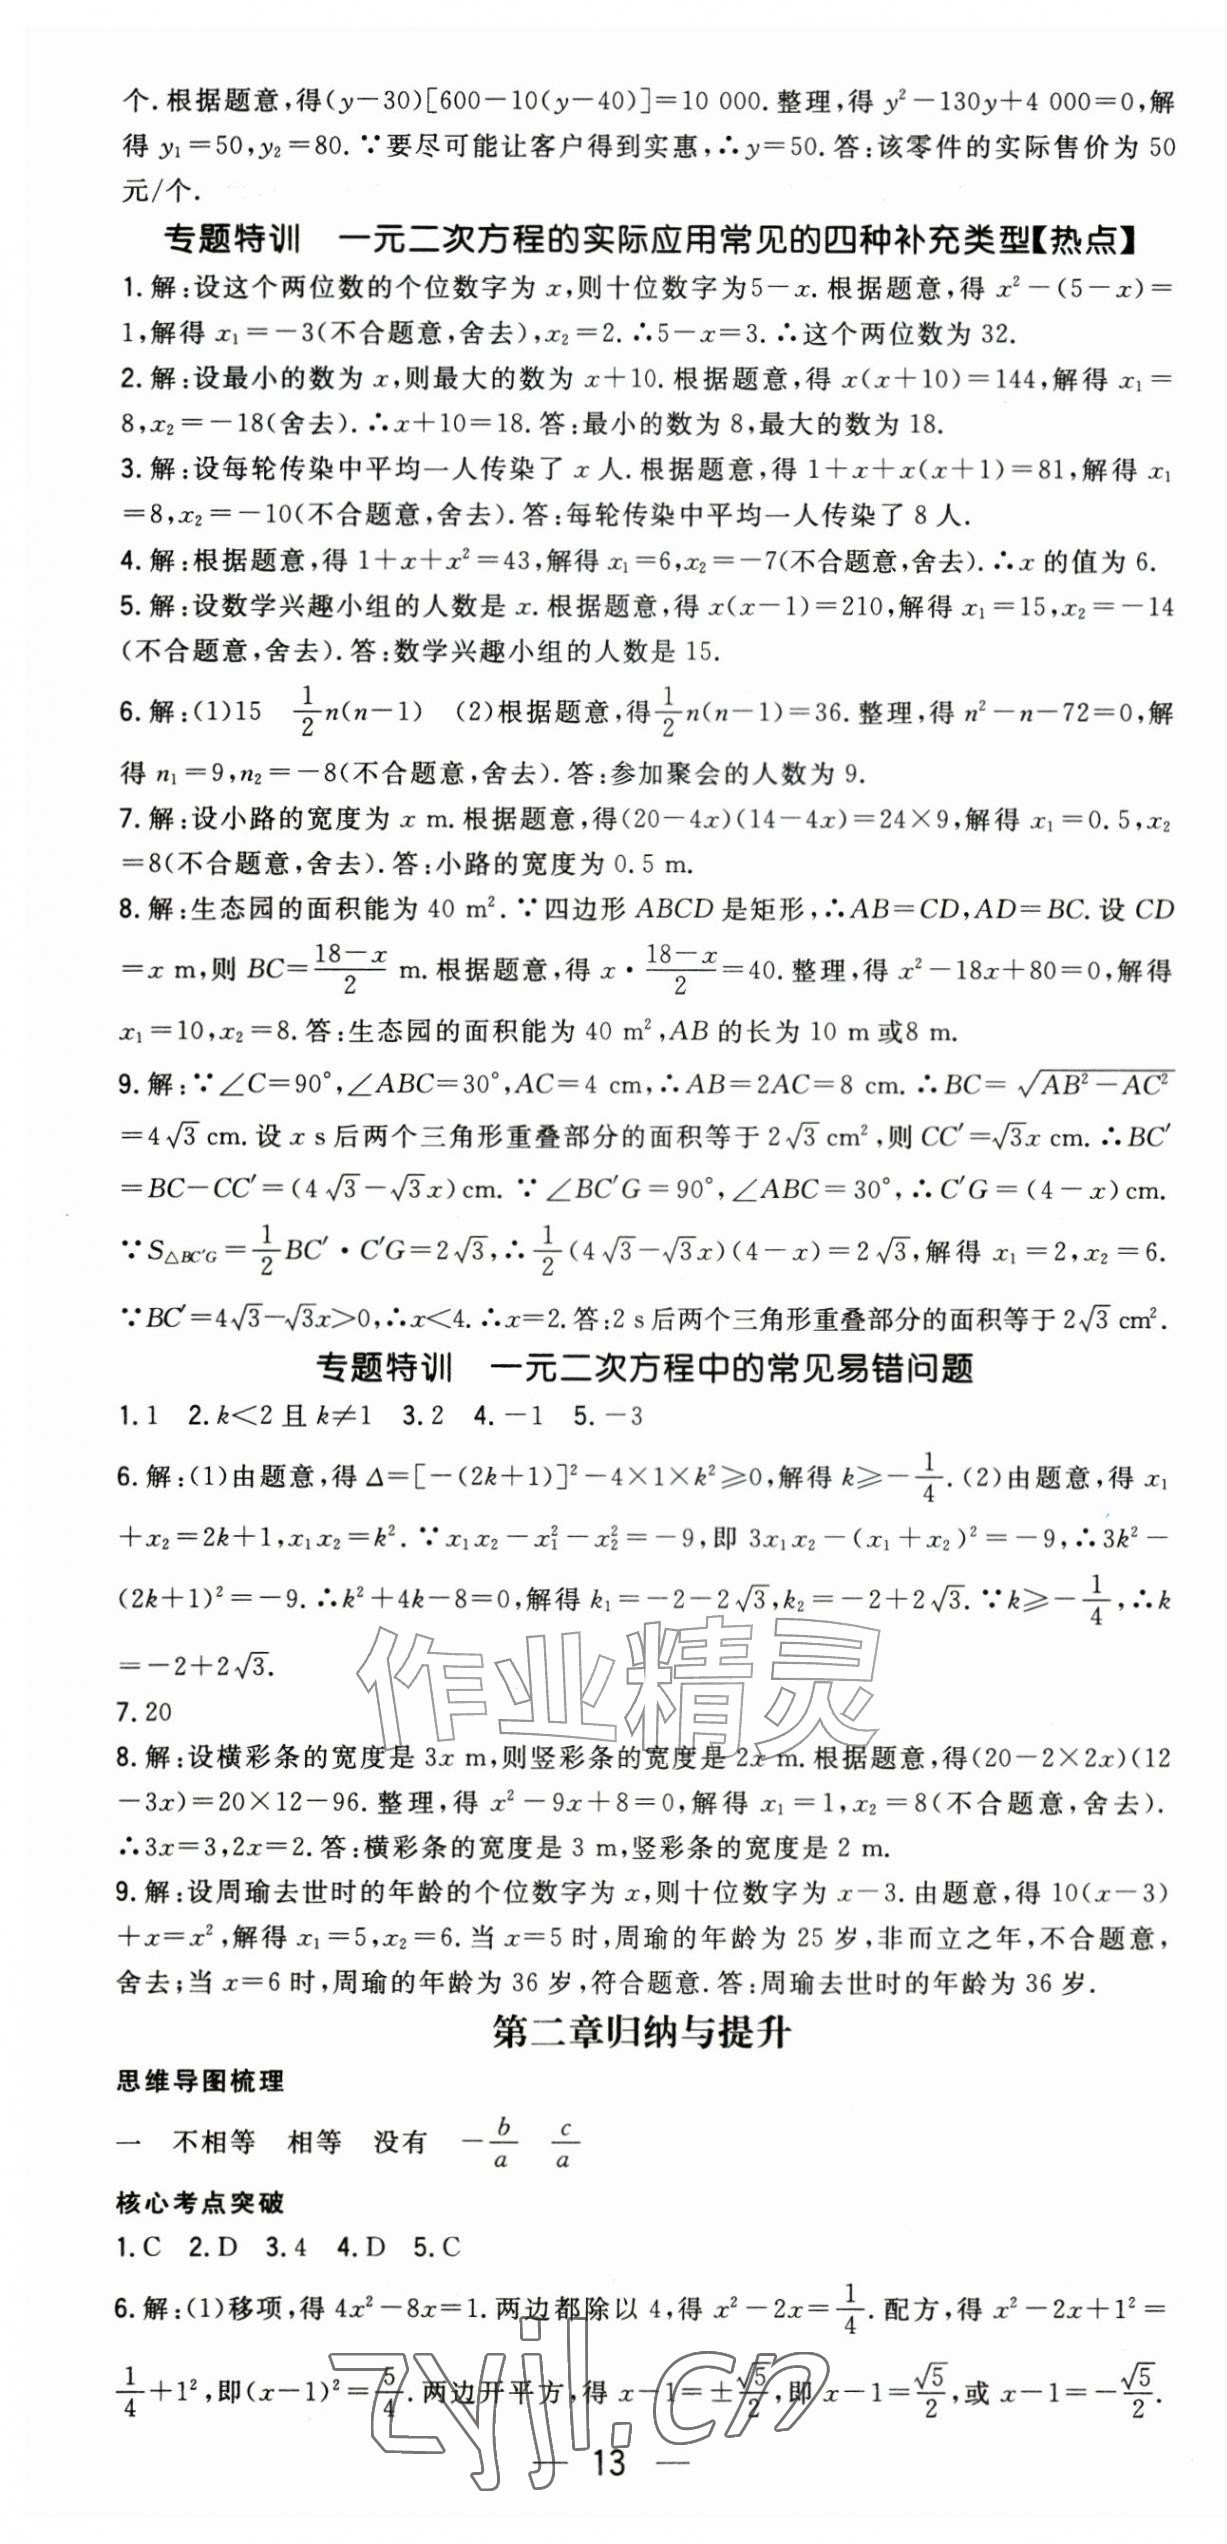 个.根据题意,得(y-30)[600-10(y-40)]=10 000.整理,得 y²-130y+4 000=0,解
得 y₁=50,y₂=80.∵要尽可能让客户得到实惠,∴y=50.答:该零件的实际售价为 50
元/个.
专题特训 一元二次方程的实际应用常见的四种补充类型【热点】
1.解:设这个两位数的个位数字为 x,则十位数字为5-x.根据题意,得 x²-(5-x)=
1,解得 x₁=-3(不合题意,舍去),x₂=2.∴5-x=3.∴这个两位数为 32.
2.解:设最小的数为 x,则最大的数为 x+10.根据题意,得 x(x+10)=144,解得 x₁=
8,x₂=-18(舍去).∴x+10=18.答:最小的数为 8,最大的数为 18.
3.解:设每轮传染中平均一人传染了 x 人.根据题意,得 1+x+x(x+1)=81,解得 x₁
=8,x₂=-10(不合题意,舍去).答:每轮传染中平均一人传染了 8 人.
4.解:根据题意,得 1+x+x²=43,解得 x₁=6,x₂=-7(不合题意,舍去).∴x 的值为 6.
5.解:设数学兴趣小组的人数是 x.根据题意,得 x(x-1)=210,解得 x₁=15,x₂=-14
(不合题意,舍去).答:数学兴趣小组的人数是 15.
6.解:(1)15 1/2 n(n-1) (2)根据题意,得 1/2 n(n-1)=36.整理,得 n²-n-72=0,解
得 n₁=9,n₂=-8(不合题意,舍去).答:参加聚会的人数为 9.
7.解:设小路的宽度为 x m.根据题意,得(20-4x)(14-4x)=24×9,解得 x₁=0.5,x₂
=8(不合题意,舍去).答:小路的宽度为 0.5 m.
8.解:生态园的面积能为 40 m².∵四边形 ABCD 是矩形,∴AB=CD,AD=BC.设 CD
=x m,则 BC=(18-x)/2 m.根据题意,得 x·(18-x)/2=40.整理,得 x²-18x+80=0,解得
x₁=10,x₂=8.答:生态园的面积能为 40 m²,AB 的长为 10 m 或8 m.
9.解:∵∠C=90°,∠ABC=30°,AC=4 cm,∴AB=2AC=8 cm.∴BC=√(AB²-AC²)
=4√3 cm.设 x s后两个三角形重叠部分的面积等于 2√3 cm²,则 CC′=√3x cm.∴BC′
=BC-CC′=(4√3-√3x)cm.∵∠BC′G=90°,∠ABC=30°,∴C′G=(4-x)cm.
∵S△BC′G=1/2 BC′·C′G=2√3,∴1/2(4√3-√3x)(4-x)=2√3,解得 x₁=2,x₂=6.
∵BC′=4√3-√3x>0,∴x<4.∴x=2.答:2 s后两个三角形重叠部分的面积等于 2√3 cm².
专题特训 一元二次方程中的常见易错问题
1.1 2.k<2 且 k≠1 3.2 4.-1 5.-3
6.解:(1)由题意,得 Δ=[-(2k+1)]²-4×1×k²≥0,解得 k≥-1/4.(2)由题意,得 x₁
+x₂=2k+1,x₁x₂=k².∵x₁x₂-x₁²-x₂²=-9,即 3x₁x₂-(x₁+x₂)²=-9,∴3k²-
(2k+1)²=-9.∴k²+4k-8=0,解得 k₁=-2-2√3,k₂=-2+2√3.∵k≥-1/4,∴k
=-2+2√3.
7.20
8.解:设横彩条的宽度是 3x m,则竖彩条的宽度是 2x m.根据题意,得(20-2×2x)(12
-3x)=20×12-96.整理,得 x²-9x+8=0,解得 x₁=1,x₂=8(不合题意,舍去).
∴3x=3,2x=2.答:横彩条的宽度是 3 m,竖彩条的宽度是 2 m.
9.解:设周瑜去世时的年龄的个位数字为 x,则十位数字为 x-3.由题意,得 10(x-3)
+x=x²,解得 x₁=5,x₂=6.当 x=5 时,周瑜的年龄为 25 岁,非而立之年,不合题意,
舍去;当 x=6 时,周瑜的年龄为 36 岁,符合题意.答:周瑜去世时的年龄为 36 岁.
第二章归纳与提升
思维导图梳理
一 不相等 相等 没有 -b/a c/a
核心考点突破
1.C 2.D 3.4 4.D 5.C
6.解:(1)移项,得 4x²-8x=1.两边都除以 4,得 x²-2x=1/4.配方,得 x²-2x+1²=
1/4+1²,即(x-1)²=5/4.两边开平方,得 x-1=±√5/2,即 x-1=√5/2,或 x-1=-√5/2.
— 13 —
作业精灵
zyjl.cn